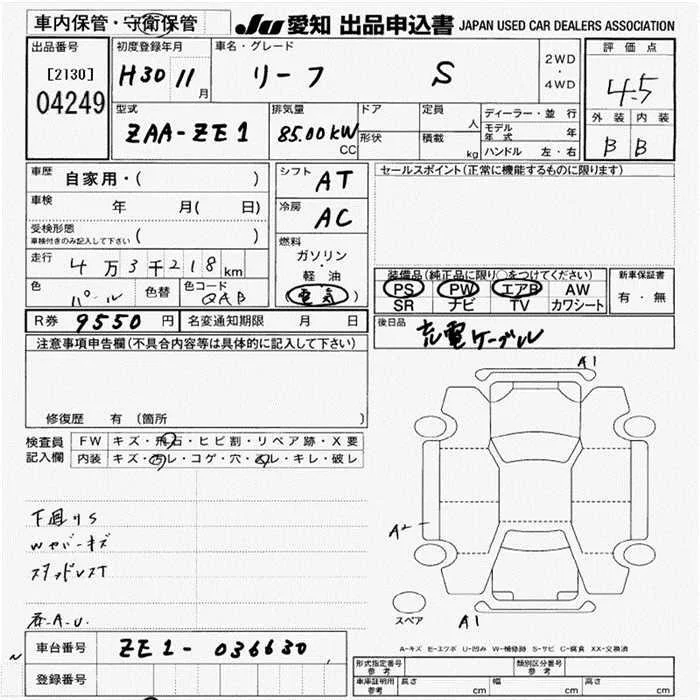 車内保管・守衛保管
JU 愛知 出品申込書 JAPAN USED CAR DEALERS ASSOCIATION
出品番号
[2130]
04249
初度登録年月
H30 11 月
車名・グレード
リーフ S
2WD
・
4WD
評価点
4.5
外装 内装
B B
型式
ZAA-ZE1
排気量
85.00KW
CC
ドア
形状
定員
人
積載
kg
ディーラー・並 行
モデル年式 年
ハンドル 左・右
車歴 自家用・( )
車検 年 月( 日)
受検形態
車検付きのみ記入して下さい ( )
走行 4万3千218km
色 パール 色替 色コード QAB
シフト AT
冷房 AC
燃料
ガソリン
・
軽 油
(電気)
セールスポイント(正常に機能するものに限ります)
装備品(純正品に限り○をつけてください)
PS PW エアB AW
SR ナビ TV カワシート
新車保証書
有・無
R券 9550円 名変通知期限 月 日
後日品
充電ケーブル
注意事項申告欄(不具合内容等は具体的に記入して下さい)
修復歴 有 (箇所 )
検査員
記入欄
FW キズ・飛石・ヒビ割・リペア跡・X要
内装 キズ・汚レ・コゲ・穴・スレ・キレ・破レ
下廻りS
Wカバーキズ
スタッドレスT
A.U.
A1
A2
スペア A1
A-キズ E-エクボ U-凹み W-補修跡 S-サビ C-腐食 XX-交換済
車台番号 ZE1-036630
登録番号
形式指定番号
参考
類別区分番号
参考
車庫証明用
参考
長さ cm 幅 cm 高さ cm